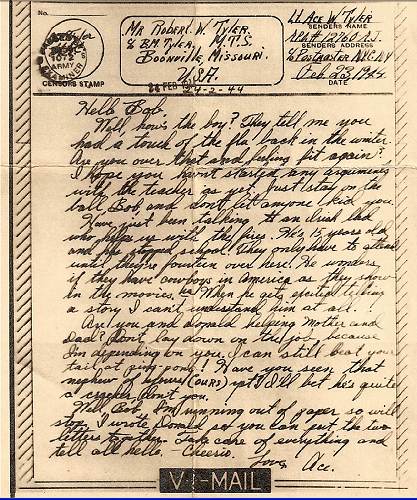 No.
1072
ARMY
EXAMINER
CENSORS STAMP
MR Robert W. Tyler
% B.M Tyler, M.T.S.
Boonville, Missouri.
U.S.A.
Lt. Ace W. Tyler
SENDERS NAME
SENDERS ADDRESS
% Postmaster N.Y.C. N.Y
Feb 23, 1944
DATE
FEB
4-2-44
Hello Bob,
Well, how's the boy? They tell me you
had a touch of the flu back in the winter.
Are you over that and feeling fit again?
I hope you havnt started any arguments
with the teacher as yet. Just stay on the
ball, Bob, and don't let anyone kid you.
Have just been talking to an Irish lad
who helps us with the fires. He's 15 years old
and has stopped school. They only have to attend
until they're fourteen over here. He wonders
if they have cowboys in America as they show
in the movies. When he gets excited telling
a story I can't understand him at all!
Are you and Donald helping Mother and
Dad? Don't lay down on the job because
I'm depending on you. I can still beat your
tail at ping pong! Have you seen that
nephew of yours (OURS) yet? I'll bet he's quite
a cracker, don't you.
Well Bob, I'm running out of paper so will
stop. I wrote Donald so you can put the two
letters together. Take care of everything and
tell all hello. - Cheerio.
Love,
Ace.
V - MAIL